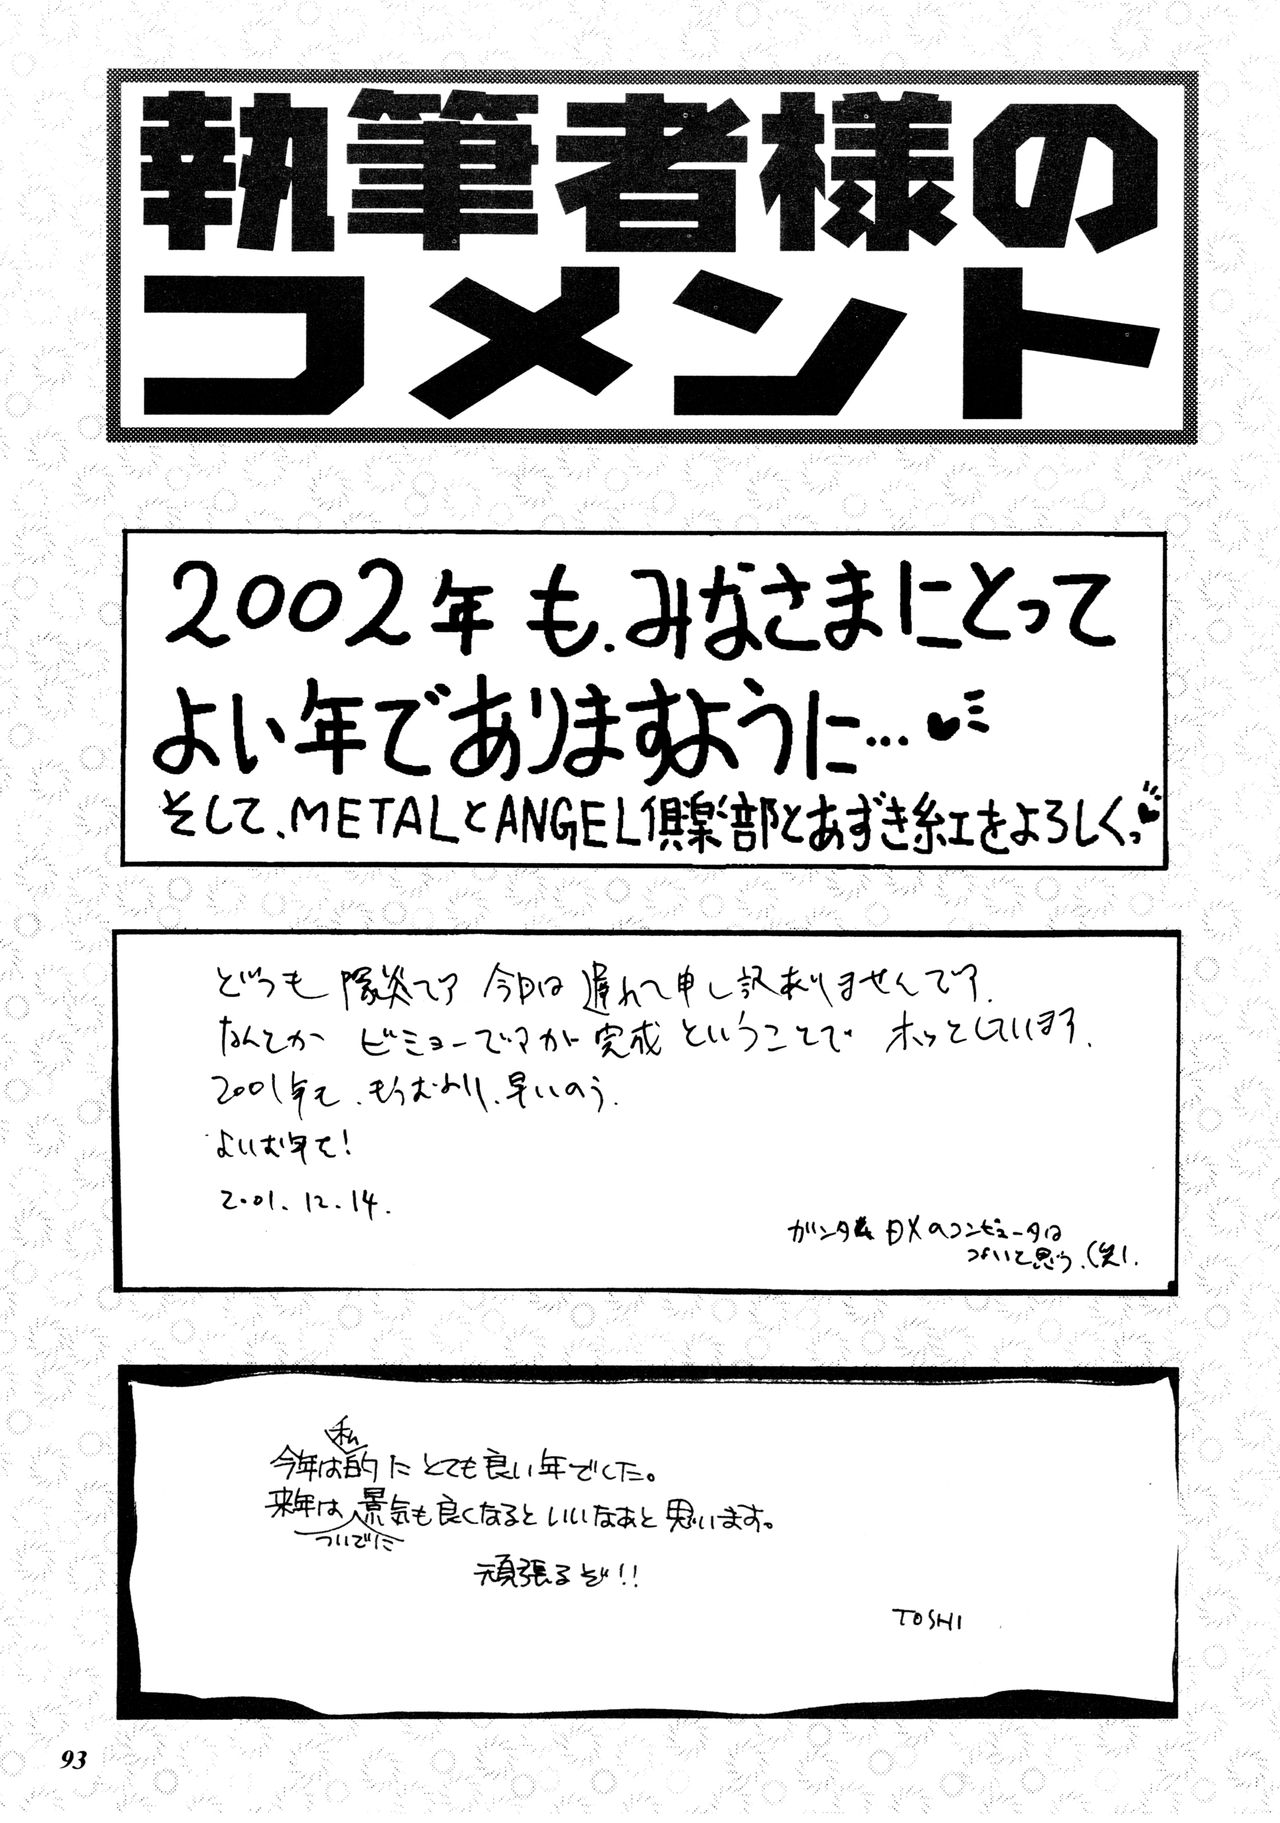 執筆者様の
コメント
2002年も、みなさまにとって
よい年でありますように…
そして、METALとANGEL倶楽部とあずき紅をよろしくっ
どうも 陽炎です 今回は 遅れて申し訳ありませんです。
なんとか ビミョーですが 完成 ということで ホッとしています。
2001年も、もうおわり、早いのう。
よいお年を!
2001.12.14.
DXのコンピュータは
つよいと思う。(笑)
私
今年は的にとても良い年でした。
来年は景気も良くなるといいなぁと思います。
ついでに
頑張るぞ!!
TOSHI
93